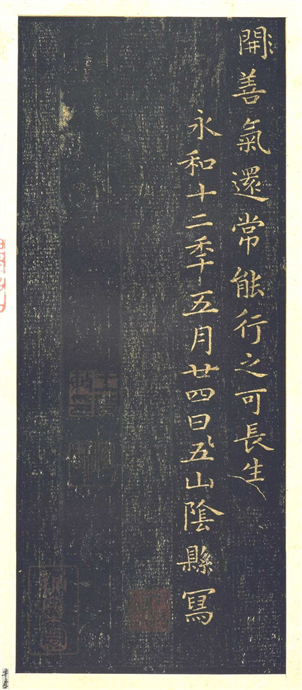 開善氣還常能行之可長生
永和十二秊五月廿四日五山陰縣寫